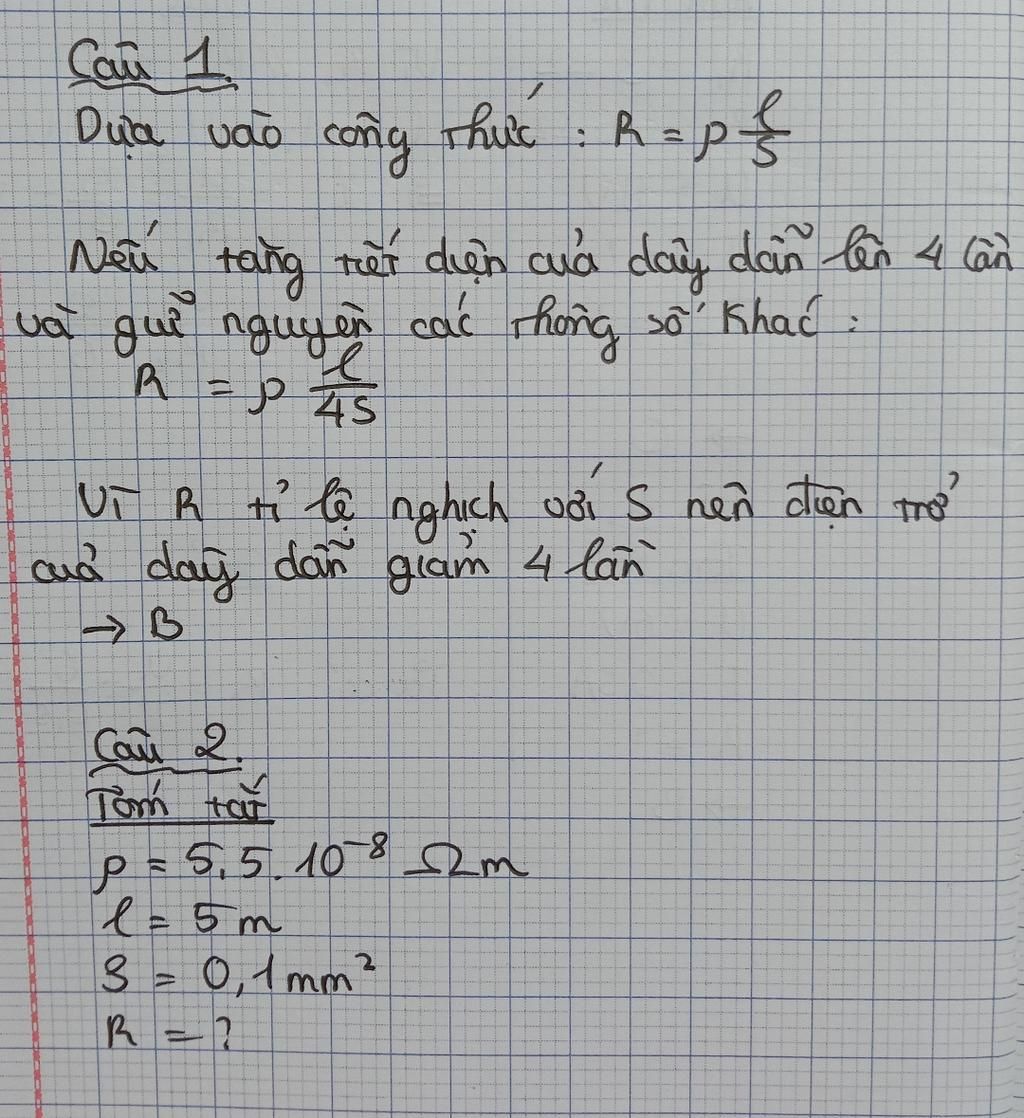 Câu 1.
Dựa vào công thức : R = ρ l/S
Nếu tăng tiết diện của dây dẫn lên 4 lần
và giữ nguyên các thông số khác :
R = ρ l/4S
Vì R tỉ lệ nghịch với S nên điện trở
của dây dẫn giảm 4 lần
→ B
Câu 2.
Tóm tắt
ρ = 5,5.10⁻⁸ Ωm
l = 5m
S = 0,1mm²
R = ?